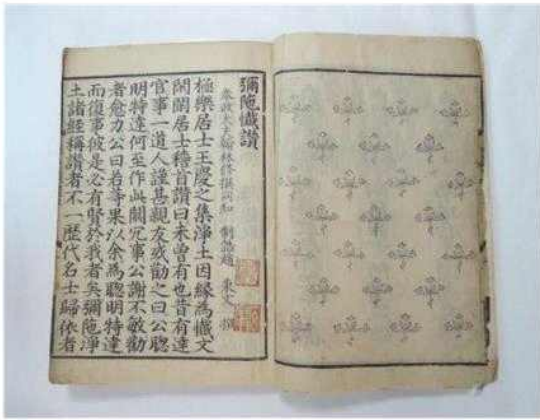 彌陁懺讚
奉政大夫翰林修撰同知 制誥趙 秉文 撰
極樂居士王慶之集淨土因緣為懺文
閑閑居士稽首讚曰未曾有也昔有達
官事一道人謹甚親友或勸之曰公聰
明特達何至作此閑冗事公謝不敏勸
者愈力公曰若等果以余為聰明特達
而復事彼是必有賢於我者矣彌陁淨
土諸經稱讚者不一歷代名士歸依者